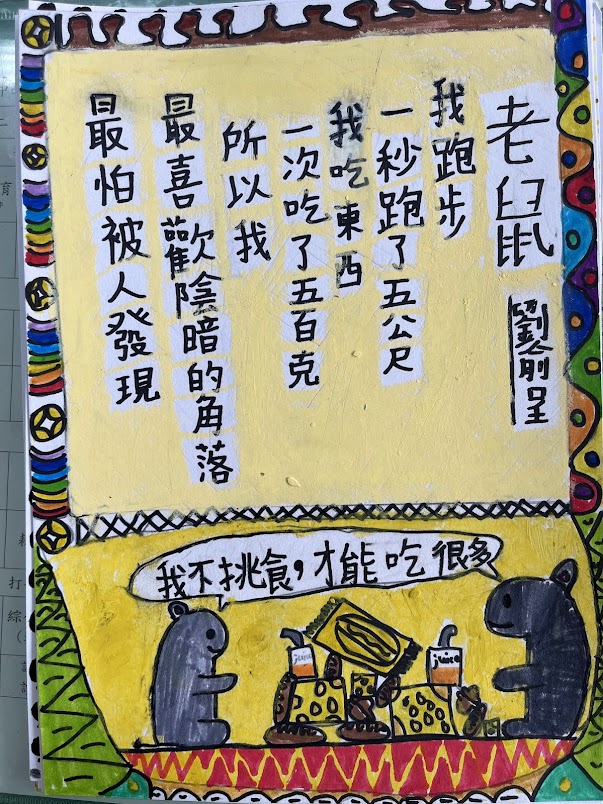 老鼠
劉前呈
我跑步
一秒跑了五公尺
我吃東西
一次吃了五百克
所以我
最喜歡陰暗的角落
最怕被人發現
我不挑食，才能吃很多
juice
juice